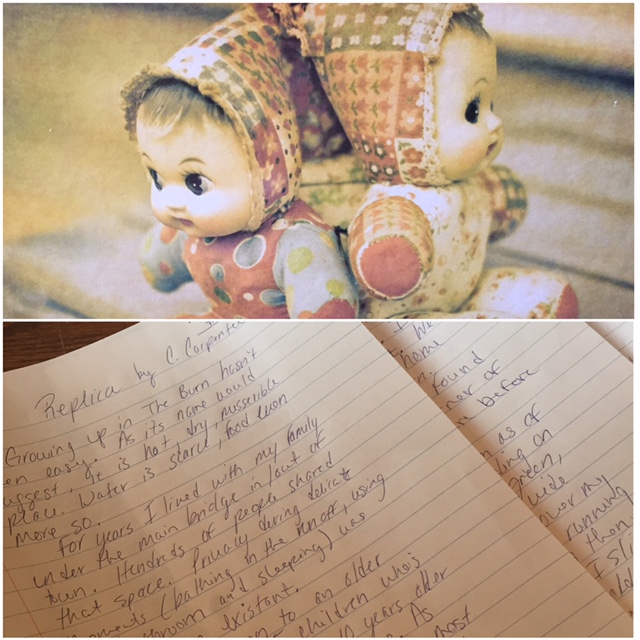 Replica by C. Carpenter
Growing up in The Burn hasn't
en easy. As its name would
uggest, it is hot, dry, misserible
place. Water is starce, food even
more so.
For years I lived with my family
under the main bridge in/out of
town. Hundreds of people shared
that space. Privacy during delicate
moments (bathing in the runoff, using
throom and sleeping) was
existant.
n to an older
children who's
years older
As
most
We
home
found
ner of
before
as of
ling on
green,
wide
over my
running
then
I sli